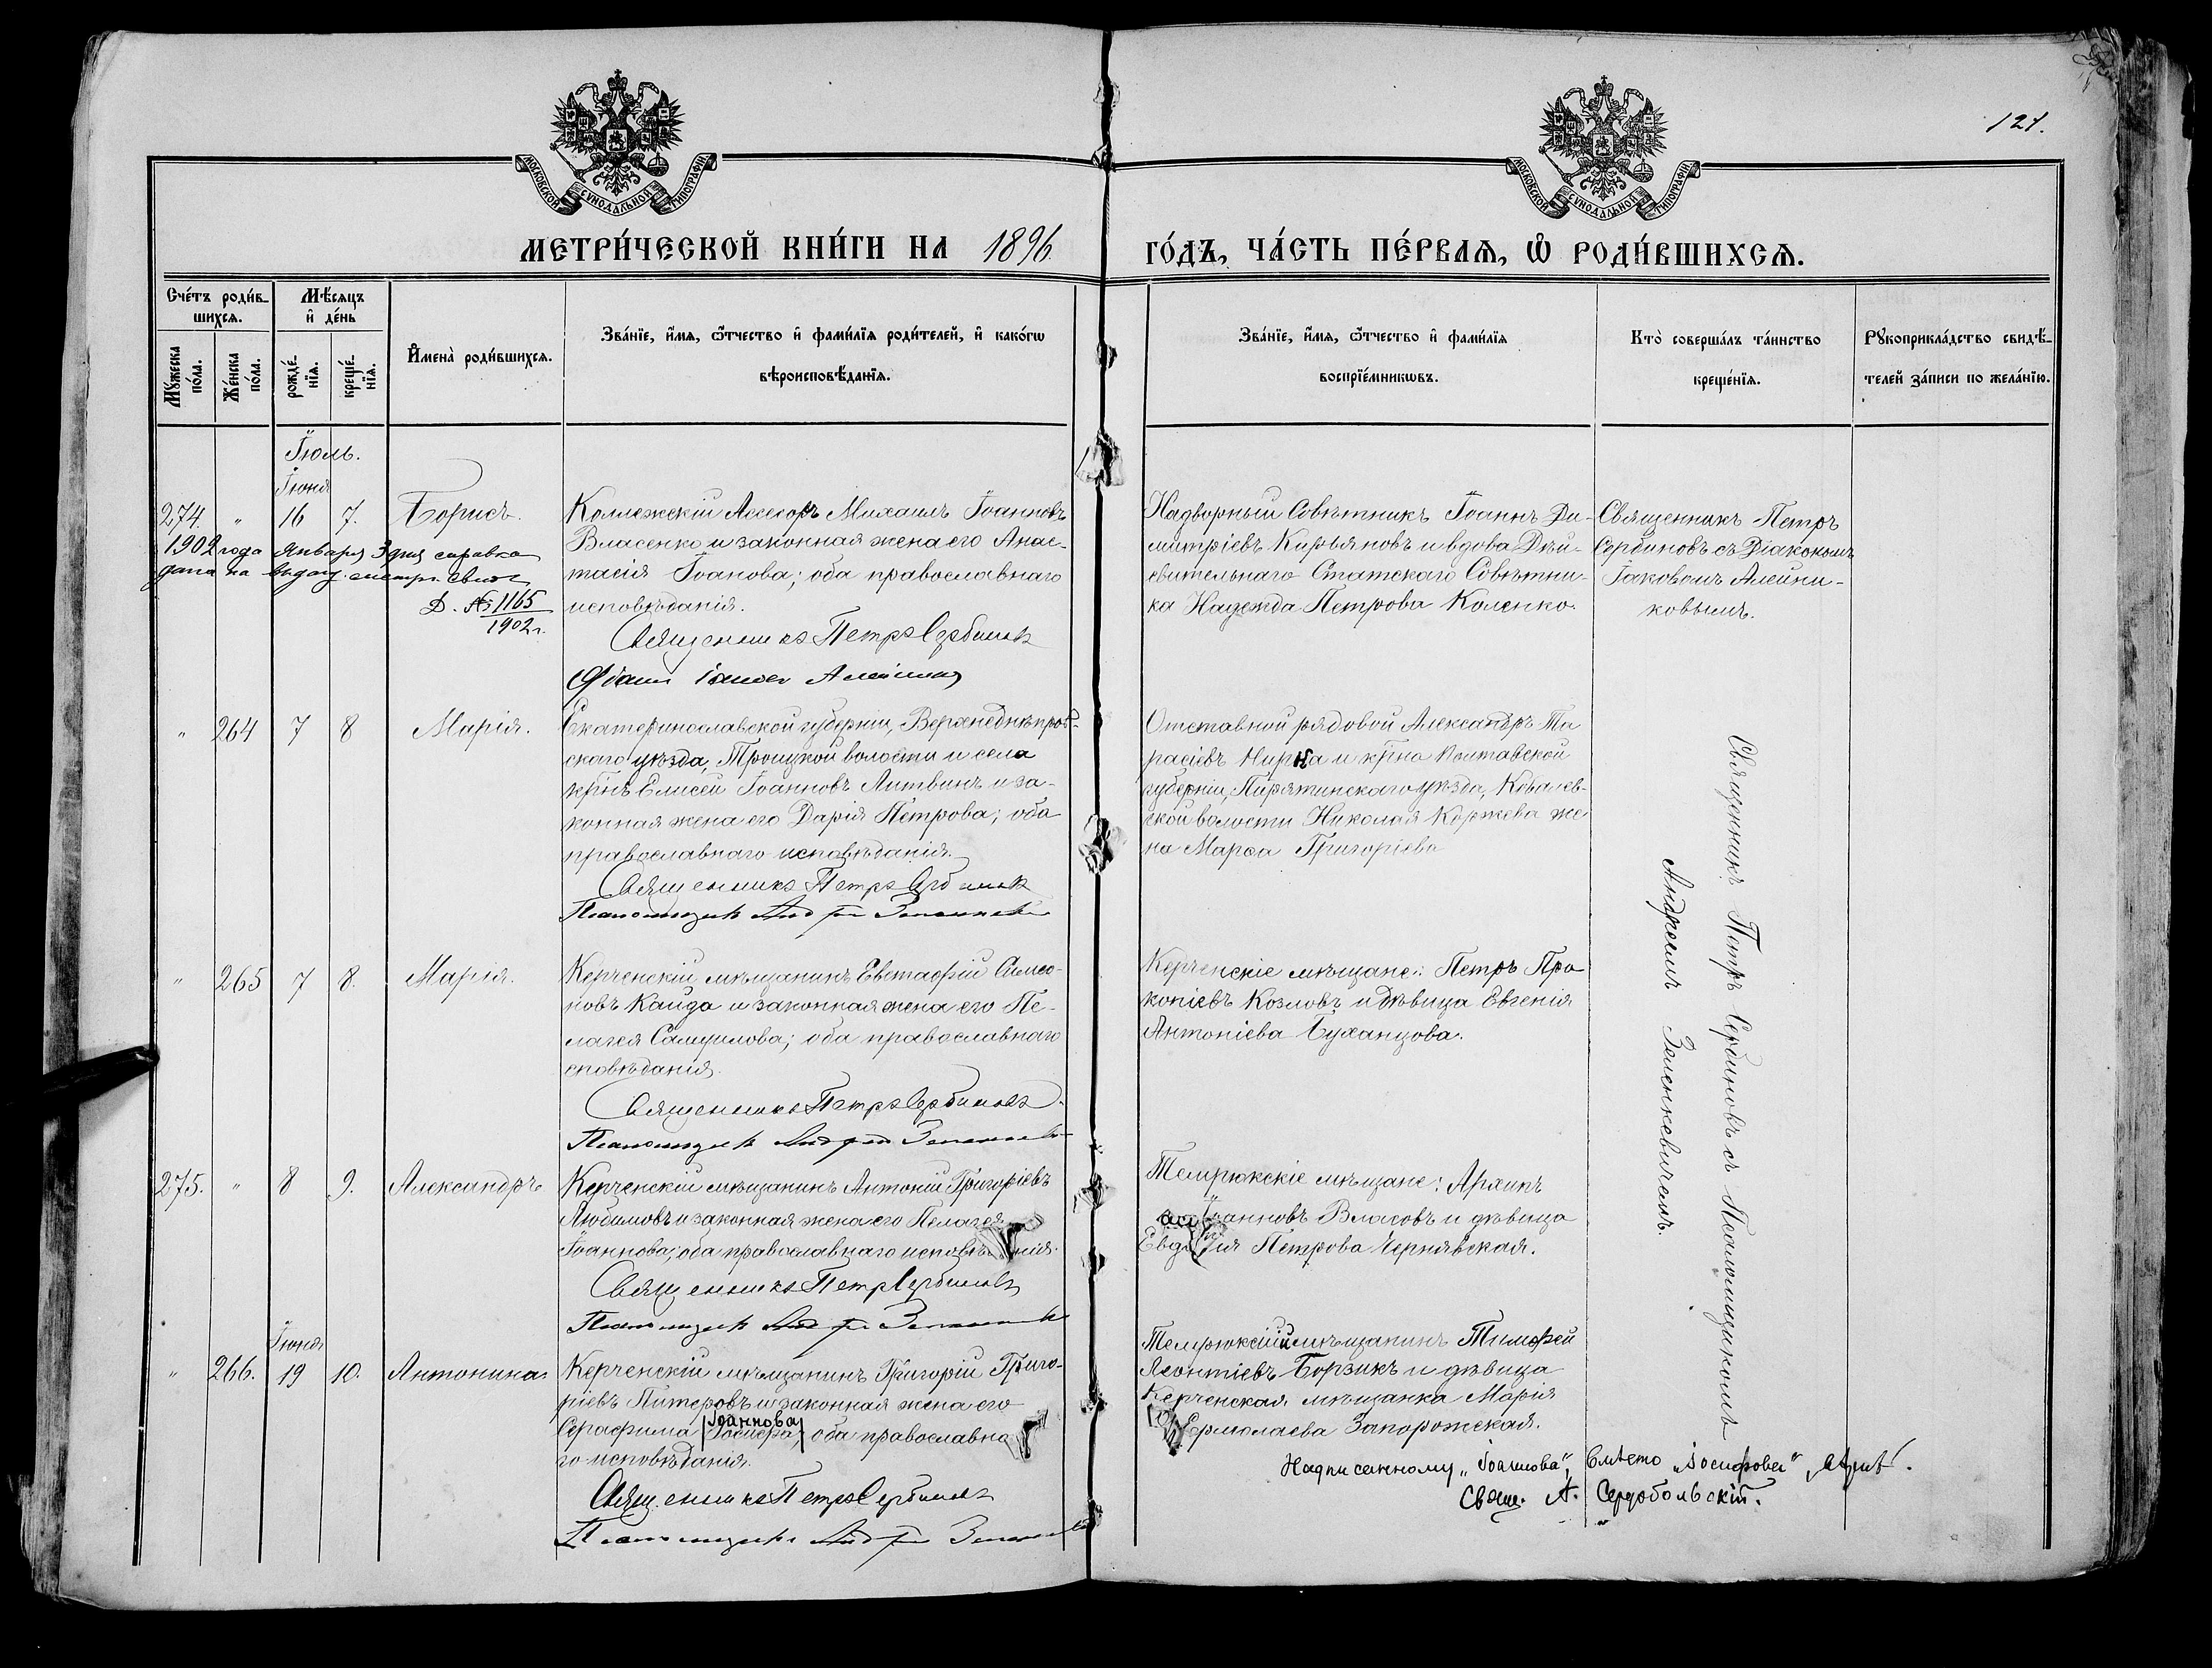 121.
МОСКОВСКОЙ СѴНОДАЛЬНОЙ ТИПОГРАФІИ
МОСКОВСКОЙ СѴНОДАЛЬНОЙ ТИПОГРАФІИ
МЕТРИ́ЧЕСКОЙ КНИ́ГИ НА 1896 ГО́ДЪ, ЧА́СТЬ ПЕ́РВАѦ, Ѡ҆ РОДИ́ВШИХСѦ.
Сче́тъ роди́в-
шихсѧ.
Мꙋ́жеска
по́ла.
Же́нска
по́ла.
Мѣ́сѧцъ
и҆ де́нь
рожде́-
нїѧ.
креще́-
нїѧ.
И҆мена̀ роди́вшихсѧ.
Зва́нїе, и҆́мѧ, ѻ҆́тчество и҆ фами́лїѧ роди́телей, и҆ како́гѡ
вѣроисповѣ́данїѧ.
Зва́нїе, и҆́мѧ, ѻ҆́тчество и҆ фами́лїѧ
воспрїе́мникѡвъ.
Кто̀ соверша́лъ та́инство
креще́нїѧ.
Рꙋкоприкла́дство свидѣ́-
телей за́писи по жела́нїю.
Іюль.
Іюня
274. " 16 7. Борисъ.
1902 года Января 3 дня справка
дана на выдачу метри. свид.
Д. № 1165
1902 г.
Коллежскій Асессоръ Михаилъ Іоанновъ
Власенко и законная жена его Анас-
тасія Іоанова; оба православнаго
исповѣданія.
Священникъ Петръ Сербиновъ
Надворный Совѣтникъ Іоаннъ Ди-
митріевъ Кирьяновъ и вдова Дѣй-
свительнаго Статскаго Совѣтни-
ка Надежда Петрова Коленко.
Священникъ Петръ
Сербиновъ съ Діакономъ
Іаковомъ Алейни-
ковымъ.
" 264 7 8 Марія.
Екатеринославской губерніи, Верхнеднѣпров-
скаго уѣзда, Троицкой волости и села
кр҃нъ Елисей Іоанновъ Литвинъ и за-
конная жена его Дарія Петрова; оба
православнаго исповѣданія.
Священникъ Петръ Сербиновъ
Псаломщикъ Андрей Зеленкевичъ
Отставной рядовой Александръ Та
расіевъ и кр҃на Полтавской
губерніи, Пирятинскаго уѣзда, Ковалев-
ской волости Николая Коржева же-
на Марѳа Григоріева
" 265 7 8. Марія.
Керченскій мѣщанинъ Евстафій Симео-
новъ Кайда и законная жена его Пе-
лагея Самуилова; оба православнаго
сповѣданія.
Священникъ Петръ Сербиновъ.
Псаломщикъ Андрей Зеленкевичъ
Керченскіе мѣщане: Петръ Про-
копіевъ Козловъ и дѣвица Евгенія
Антоніева Буханцова.
275. " 8 9. Александръ
Керченскій мѣщанинъ Антоній Григоріевъ
Любимовъ и законная жена его Пелагея
Іоаннова; оба православнаго исповѣ нія.
Священникъ Петръ Сербиновъ
Псаломщикъ Андрей Зеленкевичъ
Темрюкскіе мѣщане: Архипъ
Іоанновъ Власовъ и дѣвица
Евдо ія Петрова Чернявская.
Іюня
" 266. 19 10. Антонина
Керченскій мѣщанинъ Григорій Григо-
ріевъ Питеровъ и законная жена его
Іоаннова
Серафима Іосифова, оба православна
го исповѣданія.
Священникъ Петръ Сербиновъ
Псаломщикъ Андрей Зеленкевичъ
Темрюкскій мѣщанинъ Тимофей
Леонтіевъ Борзикъ и дѣвица
Керченская мѣщанка Марія
Ермолаева Запорожская.
Священникъ Петръ Сербиновъ съ Псаломщикомъ
Андреемъ Зеленкевичемъ.
Надписанному „Іоаннова", вмѣсто „Іосифова",
Свящ. А. Сердобольскій.